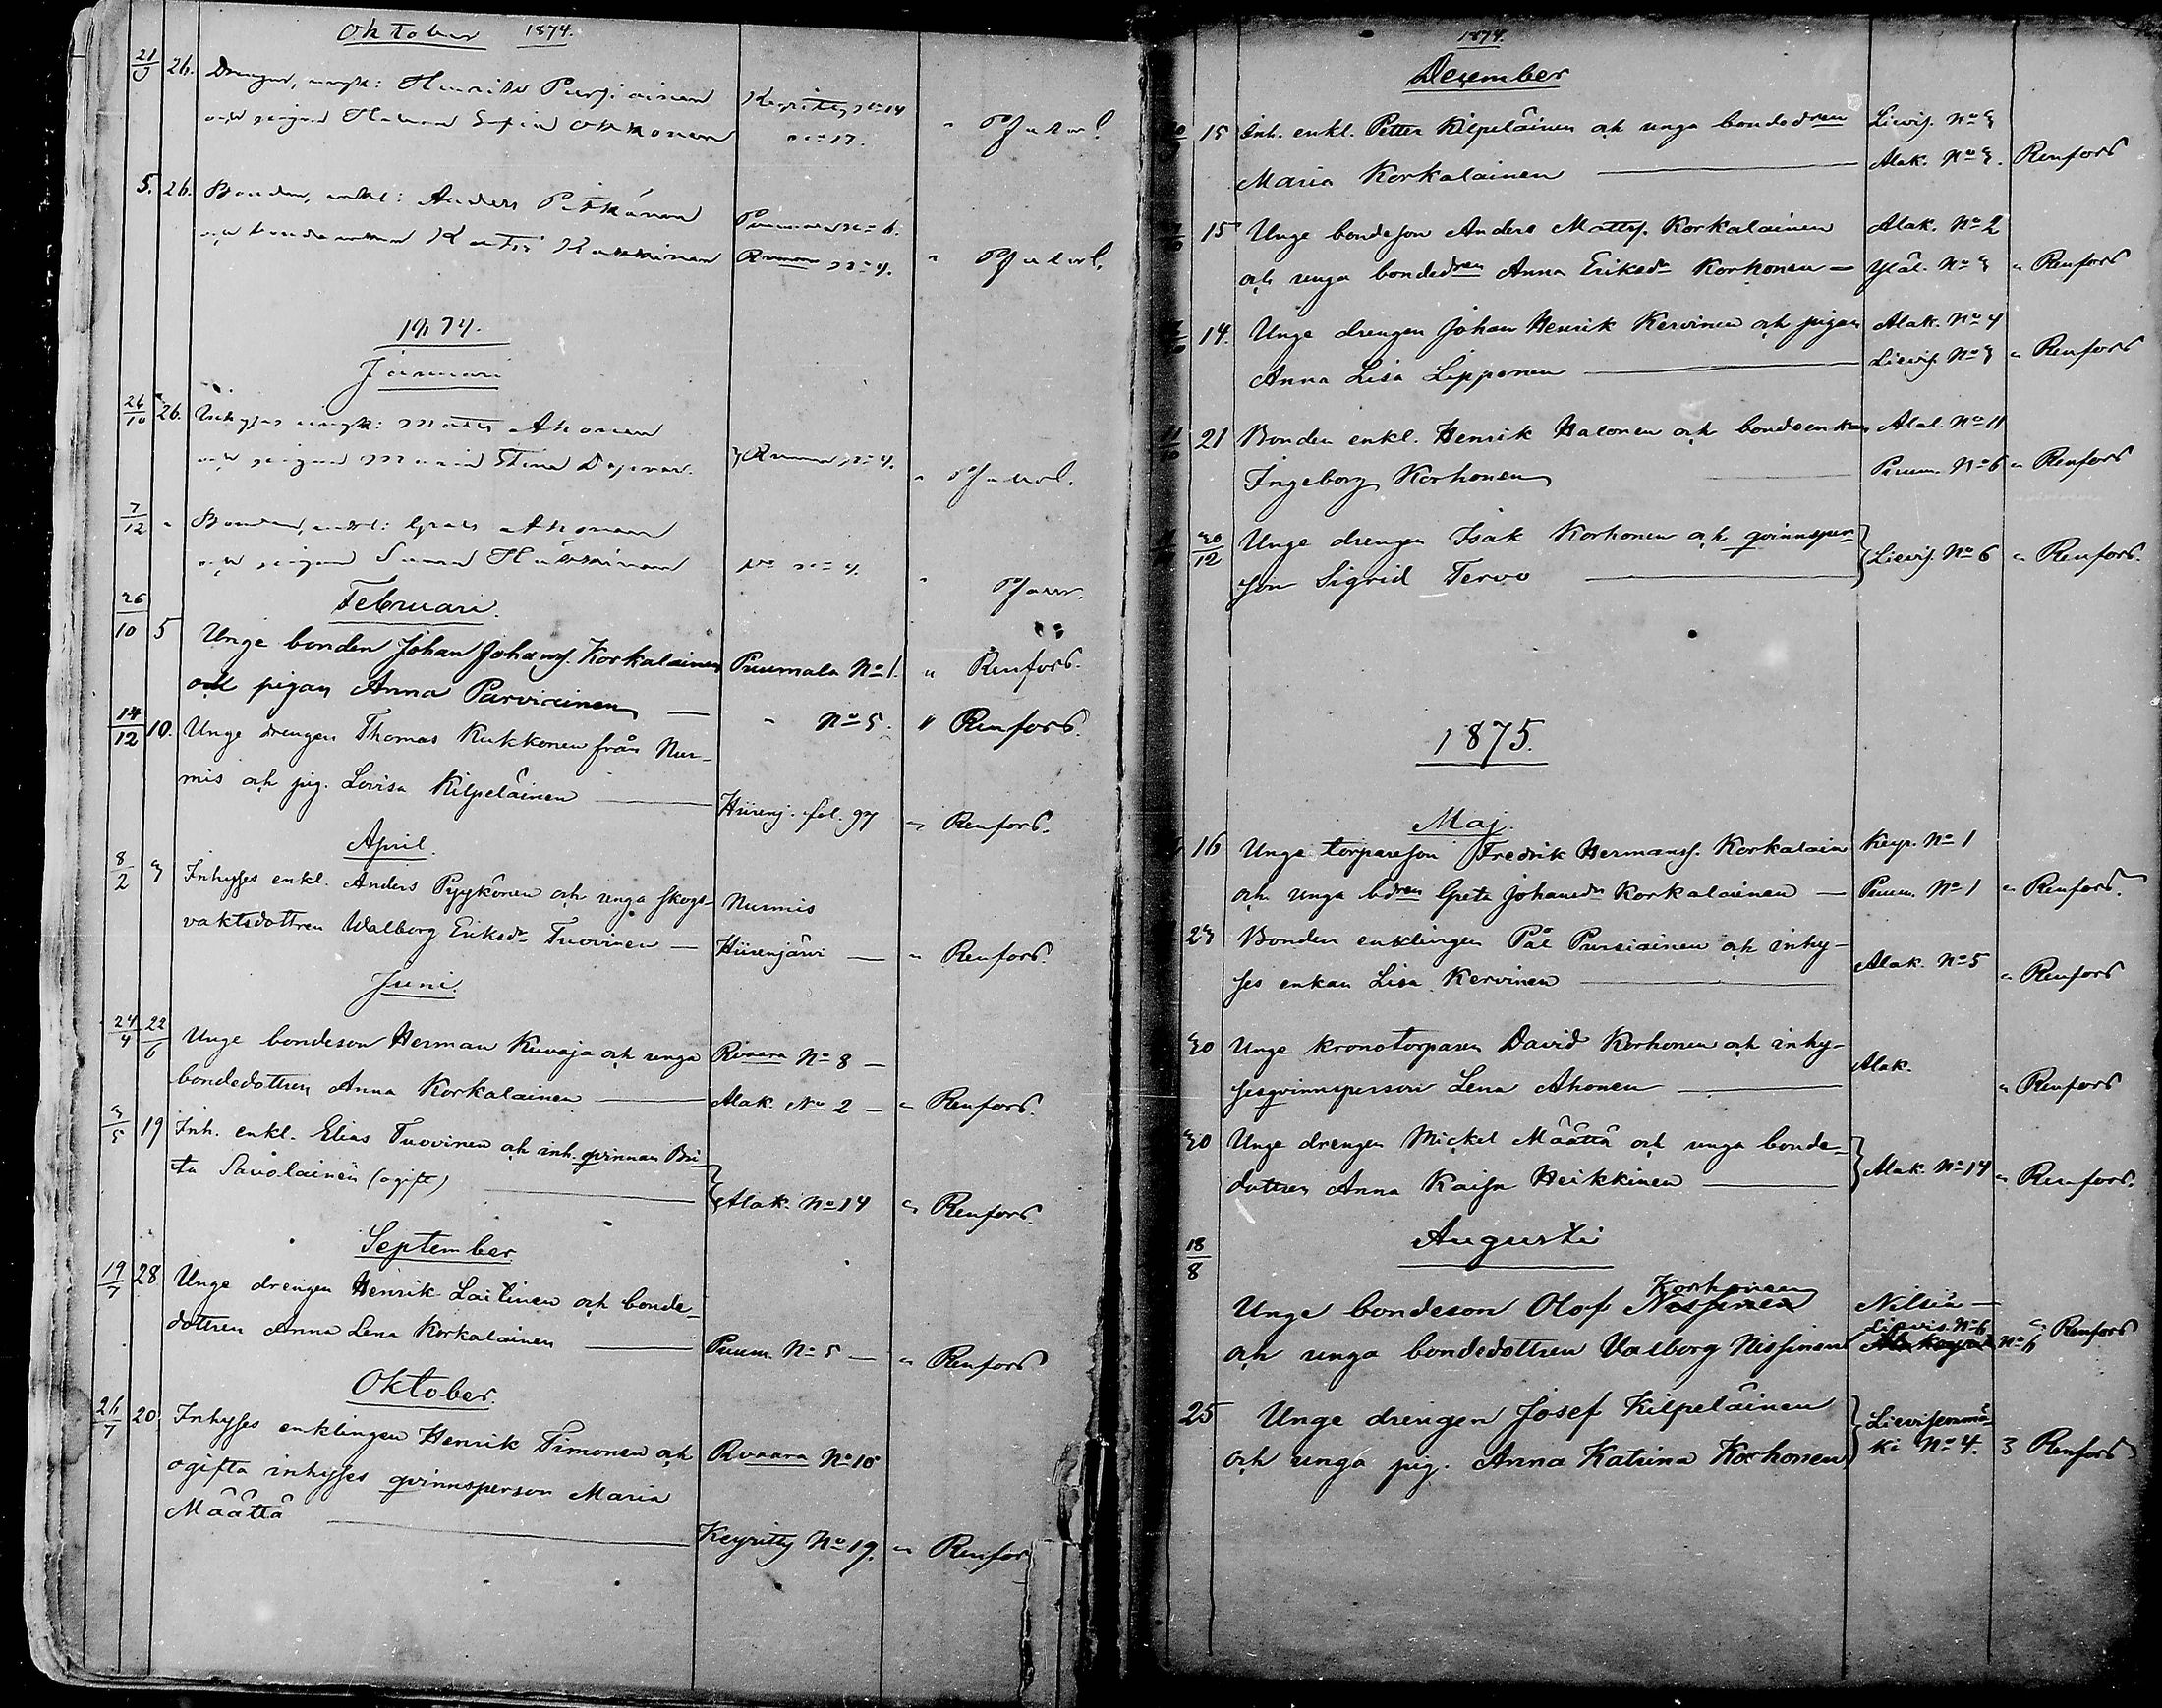 Oktober 1874.
21/9 26. Drengen, ungk: Henrik Pursiainen Keyritty No 14
och pigan Helena Sofia Okkonen No 17.
5. 26. Bonden, enkl: Anders Pitkänen Puumala No 6.
och bondeenkan R.vaara No 4.
1874.
Januari
26/10 26. Inhyses ungk: Matts Ahonen
och pigan Maria Stina } R.vaara No 4.
7/12 " Bonden, enkl: Ahonen
och pigan Huskinen No 4.
Februari.
26/10 5 Unge bonden Johan Johanss. Korkalainen Puumala No 1. " Renfors.
och pigan Anna Parviainen — " No 5. " Renfors.
14/12 10. Unge drengen Thomas Kukkonen från Nur-
mis och pig. Lovisa Kilpeläinen — Hiirenj. fol. 97 " Renfors.
April.
8/2 3 Inhyses enkl. Anders Pyykönen och unga skogs- Nurmis
vaktsdottren Walborg Eriksdr Tuovinen — Hiirenjärvi — " Renfors.
Juni.
24/4 22/6 Unge bondeson Herman Kuvaja och unga R.vaara No 8 —
bondedottren Anna Korkalainen — Alak. No 2 — " Renfors.
3/5 19 Inh. enkl. Elias Tuovinen och inh. qvinnan Bri-
ta Savolainen (ogift) — } Alak. No 14 " Renfors.
September
19/7 28 Unge drengen Henrik Laitinen och bonde-
dottren Anna Lena Korkalainen — Puum. No 5 — " Renfors
Oktober.
26/7 20. Inhyses enklingen Henrik Timonen och R.vaara No 10
ogifta inhyses qvinnsperson Maria
Määttä — Keyritty No 19. " Renfors
1874.
December
15 Inh. enkl. Petter Kilpeläinen och unga bondedren Lievis. No 3
Maria Korkalainen — Alak. No 3. Renfors
15 Unge bondeson Anders Mattss. Korkalainen Alak. No 2
och unga bondedren Anna Eriksdr Korhonen — Yläl. No 3 " Renfors
14. Unge drengen Johan Henrik Kervinen och pigan Alak. No 4
Anna Lisa Lipponen — Lievis. No 3 " Renfors
21 Bonden enkl. Henrik Halonen och bondeenkan Alal. No 11
Ingeborg Korhonen — Puum. No 6 " Renfors
30/12 Unge drengen Isak Korhonen och qvinnsper-
son Sigrid Tervo — } Lievis. No 6 " Renfors.
1875.
Maj.
16 Unge torpareson Fredrik Hermanss. Korkalain Keyr. No 1
och unga bdren Greta Johansdr Korkalainen — Puum. No 1 " Renfors.
23 Bonden enklingen Pål Pursiainen och inhy-
ses enkan Lisa Kervinen — Alak. No 5 " Renfors
30 Unge kronotorparen David Korhonen och inhy-
sesqvinnsperson Lena Ahonen — Alak. " Renfors
30 Unge drengen Mickel Määttä och unga bonde-
dottren Anna Kaisa Heikkinen — } Alak. No 14 " Renfors.
Augusti
18/8
Korhonen
Unge bondeson Olof Nissinen Nilsiä —
Lievis. No 6
och unga bondedottren Valborg Nissinen No 6 " Renfors
25 Unge drengen Josef Kilpeläinen } Lievisenmä-
och unga pig. Anna Katrina Korhonen ki No 4. 3 Renfors